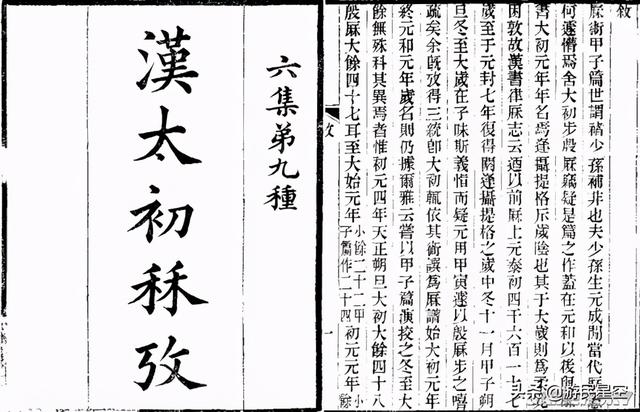 敘
厤術甲子篇世謂褚少孫補非也夫少孫生元成間當代厤
何遽懵焉舍大初步殷厤竊疑是篇之作蓋在元和以後假
書大初元年年名焉逢攝提格斥歲陰也其于大歲則爲
困敦故漢書律厤志云迺以前厤上元泰初四千六百一十七
歲至于元封七年復得閼逢攝提格之歲中冬十一月甲子朔
旦冬至大歲在子昧斯義惜而疑元用甲寅遂以殷厤步之嘻
疏矣余旣攷得三統卽大初輒依其術譔爲厤譜始大初元年
終元和元年歲名則仍據爾雅云嘗以甲子篇演挍之冬至大
餘無殊科其異焉者惟初元四年天正朔旦大初大餘四十八
殷厤大餘四十七耳至大始元年小餘二十二甲子篇作二十四初元元年小餘
攷
一
六集弟九種
漢太初秝攷
头条@游兵星空